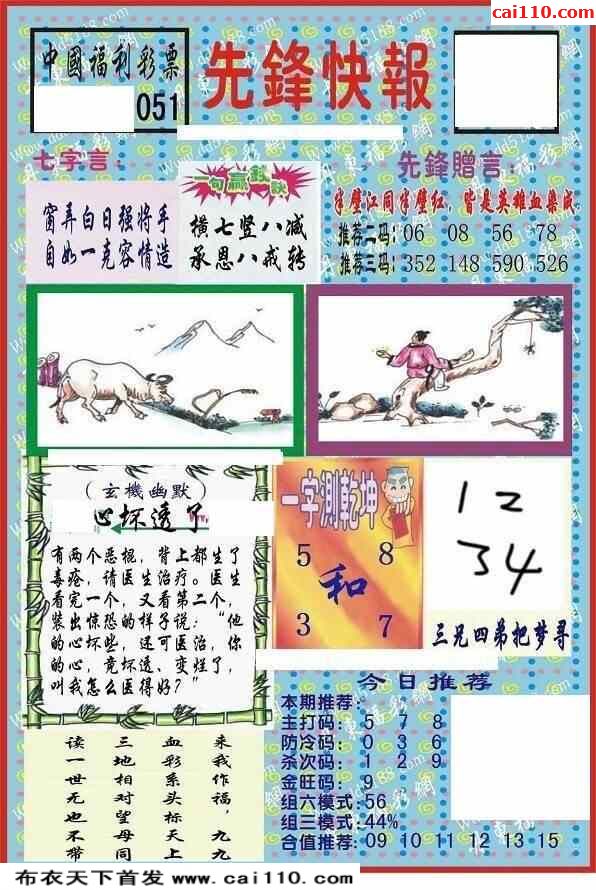 cai110.com
中國福利彩票
051
先鋒快報
七字言：
窗弄白日强将手
自如一克容情造
一句赢钱诀
横七竖八减
承恩八戒转
先鋒贈言：
半壁江同半壁红，皆是英雄血集成
推荐二码：06 08 56 78
推荐三码：352 148 590 526
（玄機幽默）
心坏透了
有两个恶棍，背上都生了
毒疮，请医生治疗。医生
看完一个，又看第二个，
装出惊恐的样子说：“他
的心坏些，还可医治，你
的心，竟坏透、变烂了，
叫我怎么医得好？”
一字测乾坤
5 8
和
3 7
12
34
三兄四弟把梦寻
今日推荐
本期推荐：
主打码：5 7 8
防冷码：0 3 6
杀次码：1 2 9
金旺码：9
组六模式：56
组三模式：44%
合值推荐：09 10 11 12 13 15
来我作福，九九
血彩系头标天上
三地相对望母同
读一世无也不带
布衣天下首发 www.cai110.com